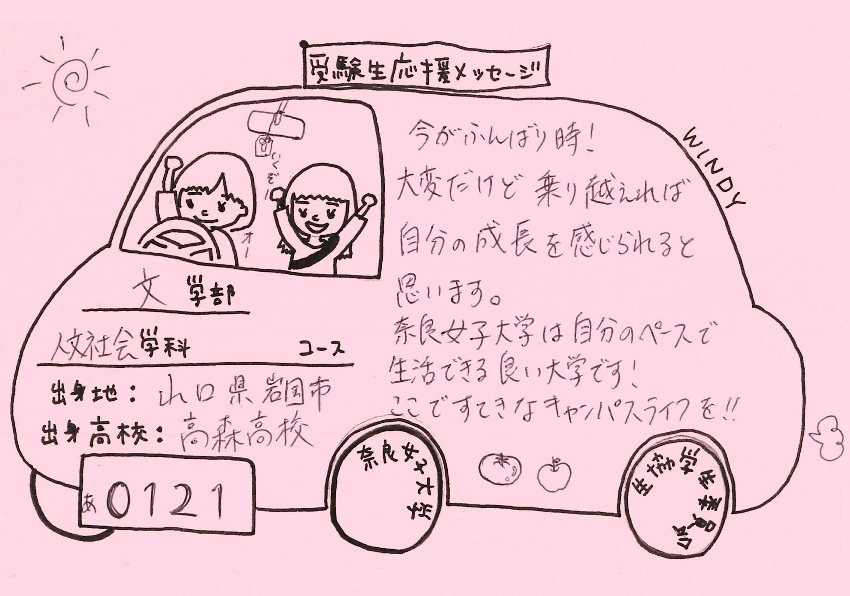 受験生応援メッセージ
WINDY
いくぞー
オー
今がふんばり時!
大変だけど乗り越えれば
自分の成長を感じられると
思います。
奈良女子大学は自分のペースで
生活できる良い大学です!
ここですてきなキャンパスライフを!!
文 学部
人文社会学科 コース
出身地: 山口県岩国市
出身高校: 高森高校
あ 0121
奈良女子大学
生協学生委員会